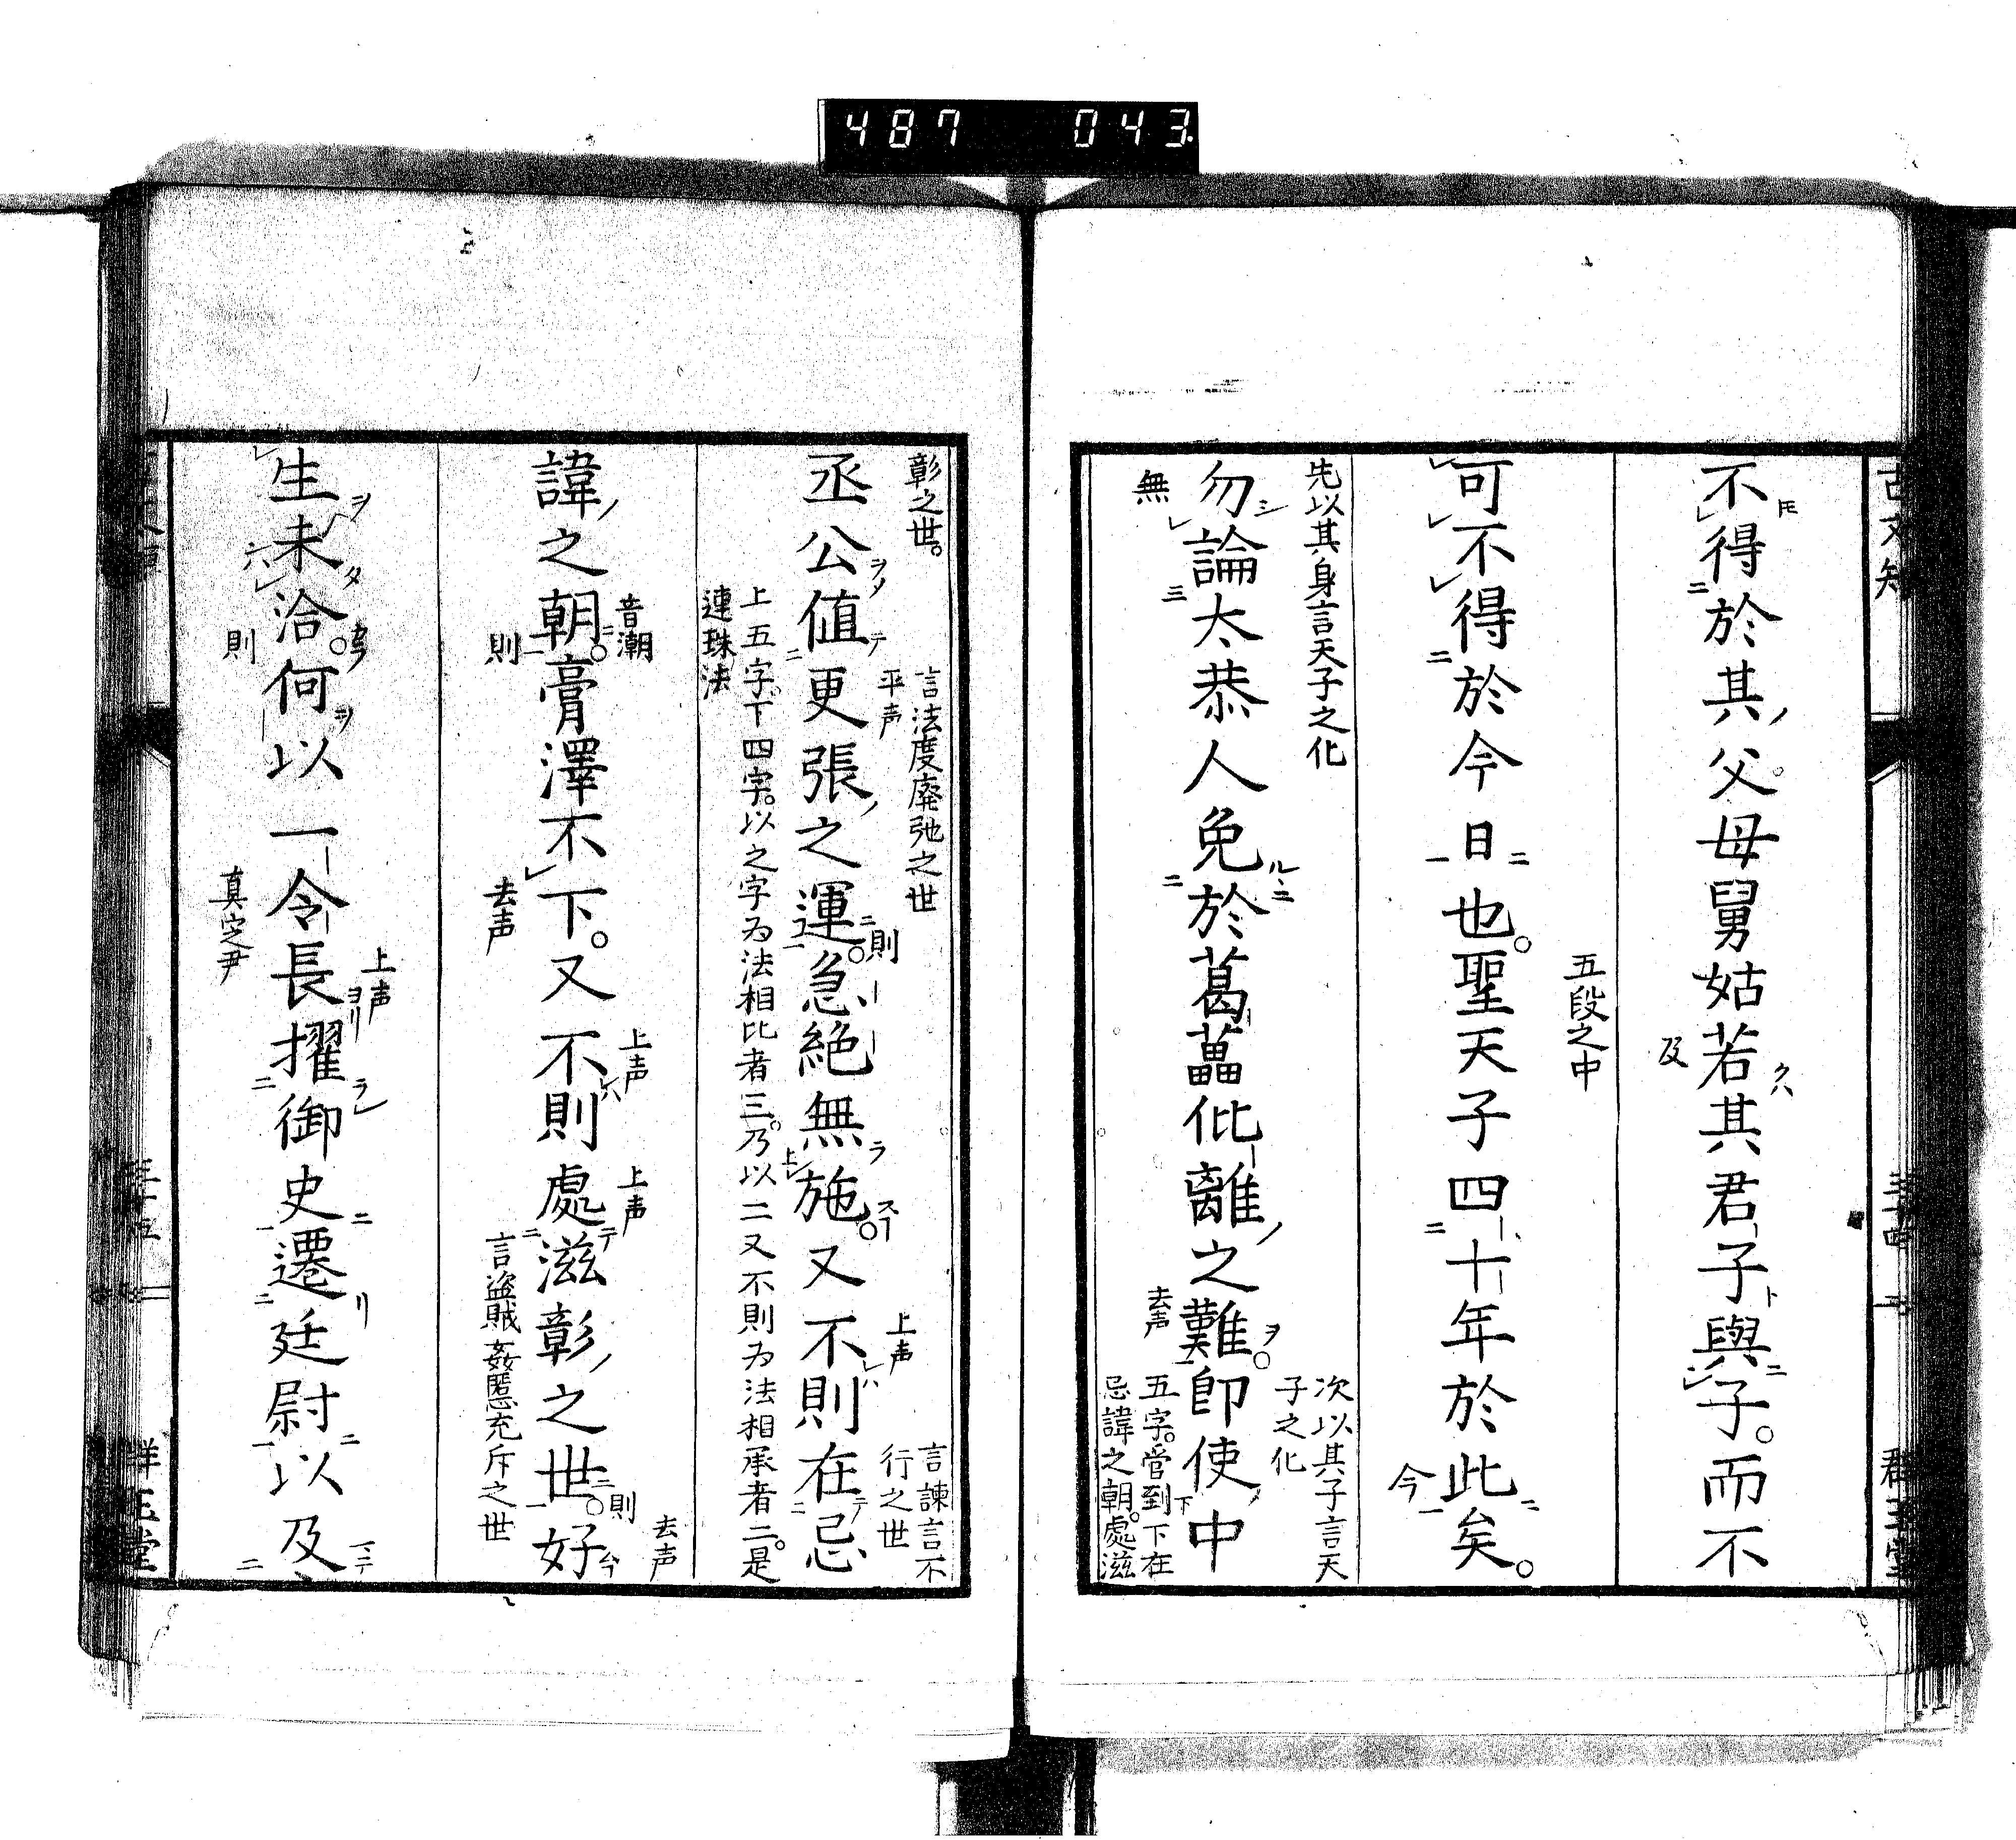 487 043
不得於其父母舅姑若其君子與子。而不
及
五段之中
可不得於今日也。聖天子四十年於此矣。
今
先以其身言天子之化
次以其子言天
子之化
勿論太恭人免於葛藟仳離之難。即使中
無
去声
五字。管到下在
忌諱之朝。處滋
彰之世。
言法度廃弛之世
平声
則
上声
言諫言不
行之世
丞公值更張之運。急絶無施。又不則在忌
上五字。下四字。以之字為法相比者三。乃以二又不則為法相承者二。是
連珠法
音潮
上声
上声
則
去声
諱之朝。膏澤不下。又不則處滋彰之世。好
則
去声
言盗賊姦慝充斥之世
上声
生未洽。何以一令長擢御史遷廷尉以及
則
真定尹
群玉堂